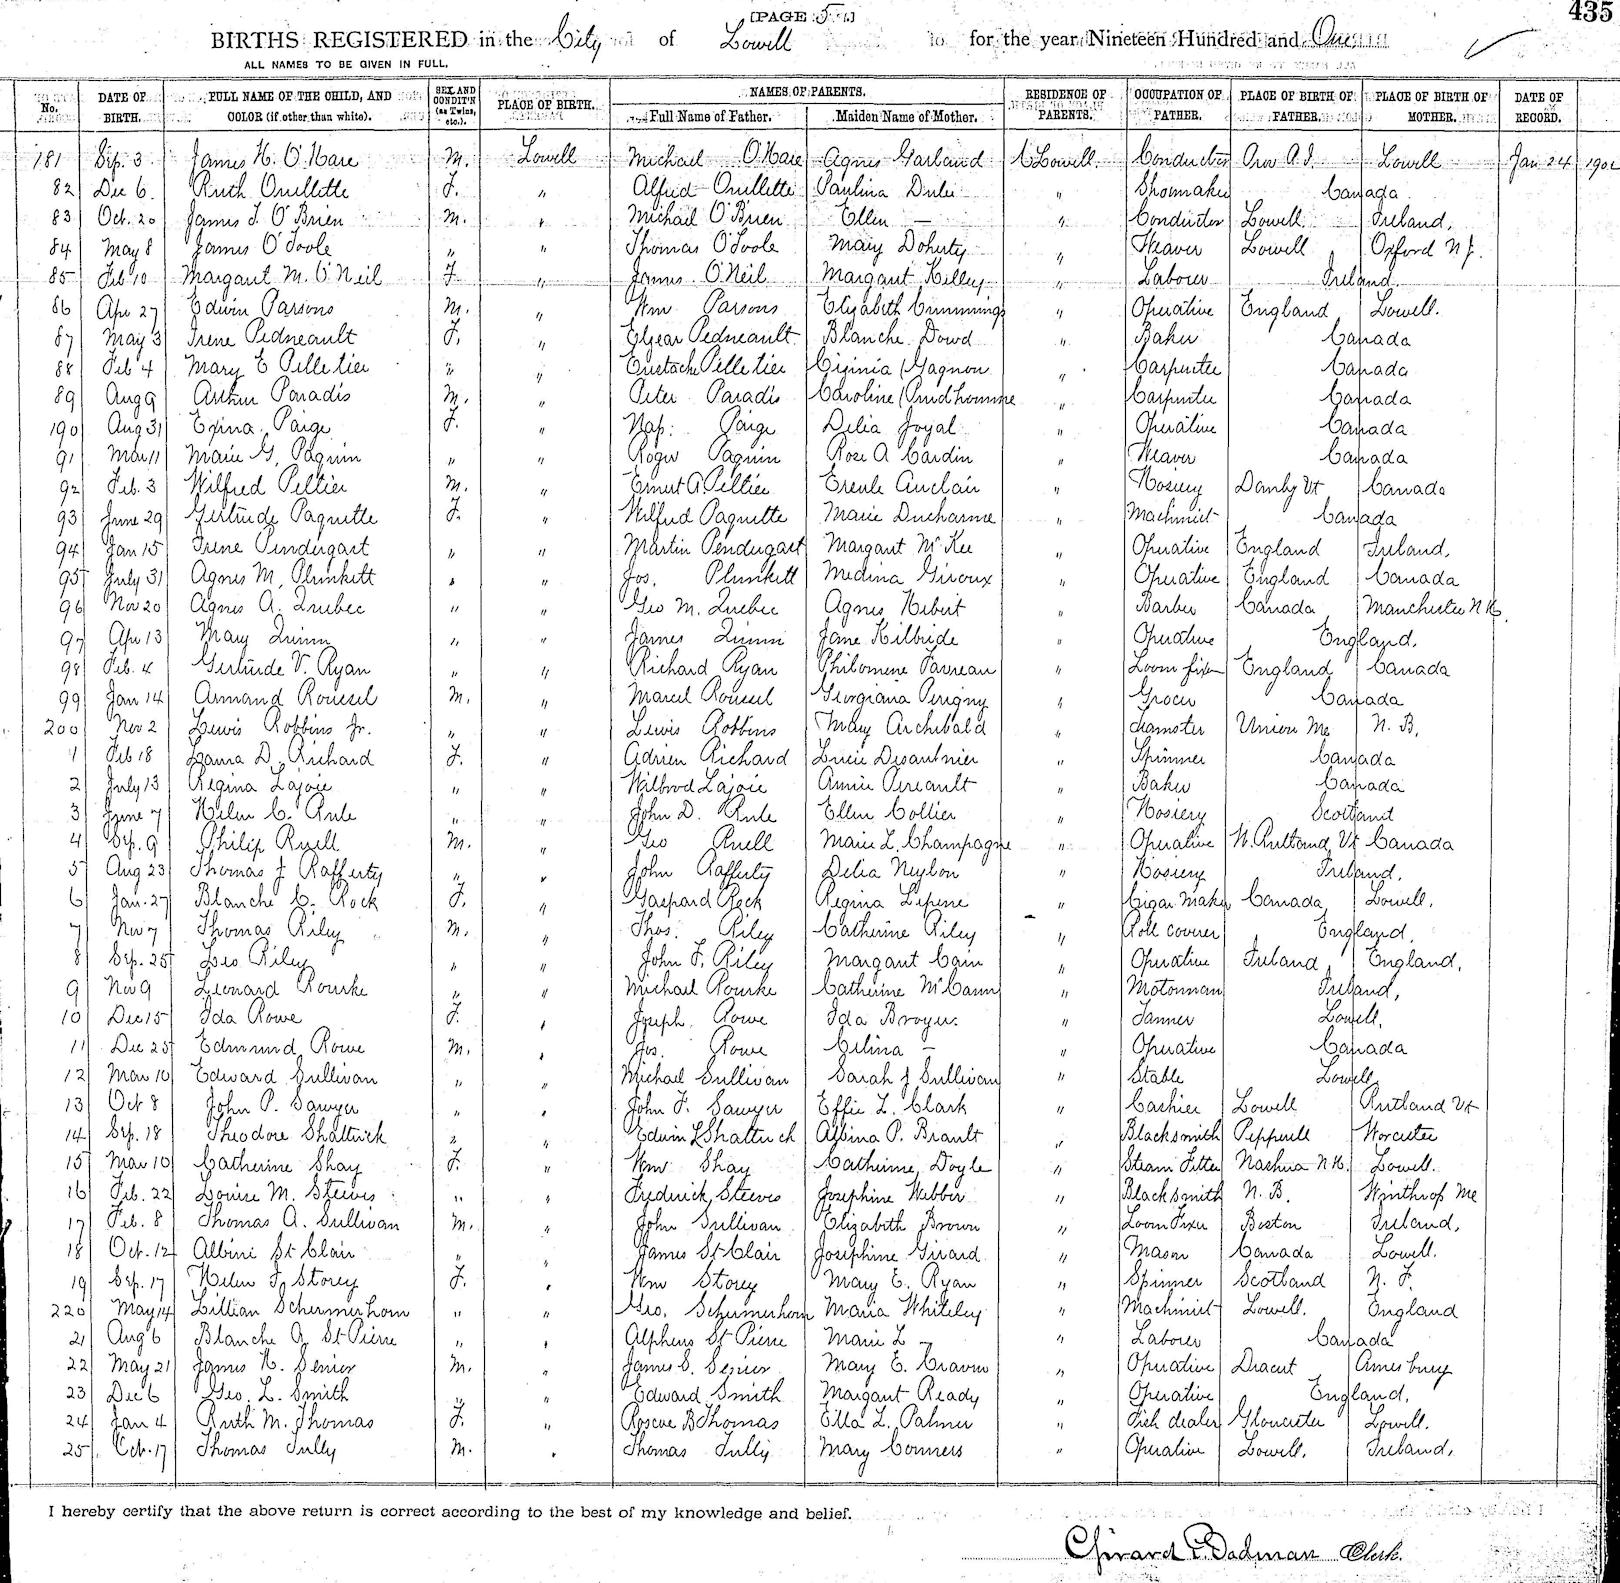 [PAGE 5]
435
BIRTHS REGISTERED in the City of Lowell for the year Nineteen Hundred and One
ALL NAMES TO BE GIVEN IN FULL.
No. DATE OF BIRTH. FULL NAME OF THE CHILD, AND COLOR (if other than white). SEX AND CONDIT'N (as Twins, etc.). PLACE OF BIRTH. NAMES OF PARENTS. Full Name of Father. Maiden Name of Mother. RESIDENCE OF PARENTS. OCCUPATION OF FATHER. PLACE OF BIRTH OF FATHER. PLACE OF BIRTH OF MOTHER. DATE OF RECORD.
181 Sep. 3 James H. O'Hare M. Lowell Michael O'Hare Agnes Garland Lowell. Conductor Prov R.I. Lowell Jan 24 1902
82 Dec 6 Ruth Ouillette F. " Alfred Ouillette Paulina Dube " Shoemaker Canada
83 Oct. 20 James F. O'Brien M. " Michael O'Brien Ellen — " Conductor Lowell Ireland,
84 May 8 James O'Toole " " Thomas O'Toole Mary Doherty " Weaver Lowell Oxford N.J.
85 Feb 10 Margaret M. O'Neil F " James O'Neil Margaret Kelley " Laborer Ireland
86 Apr 27 Edwin Parsons M. " Wm Parsons Elizabeth Cummings " Operative England Lowell.
87 May 3 Irene Pedneault F. " Elzear Pedneault Blanche Dowd " Baker Canada
88 Feb 4 Mary E Pelletier " " Eustach Pelletier Virginia Gagnon " Carpenter Canada
89 Aug 9 Arthur Paradis M. " Peter Paradis Caroline Prudhomme " Carpenter Canada
190 Aug 31 Exina Paige F. " Nap: Paige Delia Joyal " Operative Canada
91 Mar 11 Marie G. Paquin " " Roger Paquin Rose A Cardin " Weaver Canada
92 Feb. 3 Wilfred Peltier M. " Ernest A. Peltier Auclair " Hosiery Danby Vt Canada
93 June 29 Gertrude Paquette F. " Wilfred Paquette Marie Ducharme " Machinist Canada
94 Jan 15 Irene Pendergast " " Martin Pendergast Margaret McKee " Operative England Ireland,
95 July 31 Agnes M. Plunkett " " Jos. Plunkett Medina Giroux " Operative England Canada
96 Nov 20 Agnes A. Quebec " " Geo M. Quebec Agnes Hebert " Barber Canada Manchester N.H.
97 Apr 13 Mary Quinn " " James Quinn Jane Kilbride " Operative England,
98 Feb. 4 Gertrude V. Ryan " " Richard Ryan Philomene Favreau " Loom fixer England Canada
99 Jan 14 Armand Roussel M. " Marcel Roussel Georgiana Perigny " Grocer Canada
200 Nov 2 Lewis Robbins Jr. " " Lewis Robbins Mary Archibald " teamster Union Me N. B.
1 Feb 18 Laura D. Richard F. " Adrien Richard Lucie Desautnier " Spinner Canada
2 July 13 Regina Lajoie " " Wilbrod Lajoie Annie Pereault " Baker Canada
3 June 7 Helen C. Rule " " John D. Rule Ellen Collier " Hosiery Scotland
4 Sep. 9 Philip Ruell M. " Geo Ruell Marie L. Champagne " Operative W. Rutland Vt Canada
5 Aug 23 Thomas J Rafferty " " John Rafferty Delia Neylon " Hosiery Ireland,
6 Jan. 27 Blanche C. Rock F. " Gaspard Rock Regina Lepine " Cigar Maker Canada Lowell,
7 Nov 7 Thomas Riley M. " Thos. Riley Catherine Riley " Roll coverer England,
8 Sep. 25 Leo Riley " " John F. Riley Margaret Cain " Operative Ireland England,
9 Nov 9 Leonard Rourke " " Michael Rourke Catherine McCann " Motorman Ireland,
10 Dec 15 Ida Rowe F. " Joseph Rowe Ida Broyer " Tanner Lowell,
11 Dec 25 Edmund Rowe M. " Jos. Rowe Celina — " Operative Canada
12 Mar 10 Edward Sullivan " " Michael Sullivan Sarah J Sullivan " Stable Lowell
13 Oct 8 John P. Sawyer " " John F. Sawyer Effie L. Clark " Cashier Lowell Rutland Vt
14 Sep. 18 Theodore Shattuck " " Edwin L Shattuck Albina P. Brault " Blacksmith Pepperell Worcester
15 Mar 10 Catherine Shay F. " Wm Shay Catherine Doyle " Steam Fitter Nashua N.H. Lowell.
16 Feb. 22 Louise M. Steeves " " Frederick Steeves Josephine Webber " Blacksmith N. B. Winthrop Me
17 Feb. 8 Thomas A. Sullivan M. " John Sullivan Elizabeth Brown " Loom Fixer Boston Ireland,
18 Oct. 12 Albini St Clair " " James St Clair Josephine Girard " Mason Canada Lowell.
19 Sep. 17 Helen F. Storey F. " Wm Storey Mary E. Ryan " Spinner Scotland N. F.
220 May 14 Lillian Schermerhorn " " Geo. Schermerhorn Maria Whiteley " Machinist Lowell. England
21 Aug 6 Blanche A. St Pierre " " Alpheus St Pierre Marie L — " Laborer Canada
22 May 21 James H. Senior M. " James S. Senior Mary E. Craven " Operative Dracut Amesbury
23 Dec 6 Geo. L. Smith " " Edward Smith Margaret Ready " Operative England,
24 Jan 4 Ruth M. Thomas F. " Roscoe B Thomas Etta L. Palmer " Fish dealer Gloucester Lowell.
25 Oct. 17 Thomas Tully M. " Thomas Tully Mary Conners " Operative Lowell. Ireland,
I hereby certify that the above return is correct according to the best of my knowledge and belief.
Girard P. Dadman Clerk.